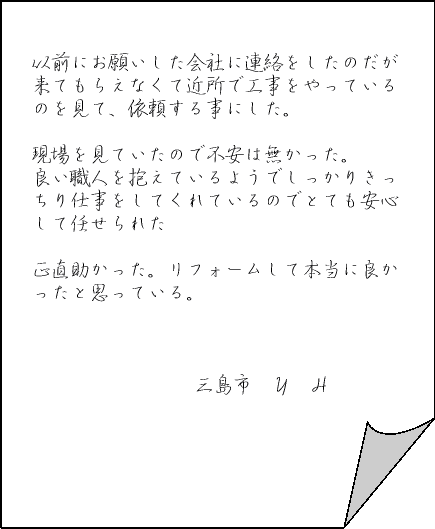 以前にお願いした会社に連絡をしたのだが
来てもらえなくて近所で工事をやっている
のを見て、依頼する事にした。
現場を見ていたので不安は無かった。
良い職人を抱えているようでしっかりきっ
ちり仕事をしてくれているのでとても安心
して任せられた
正直助かった。リフォームして本当に良か
ったと思っている。
三島市　Y　H